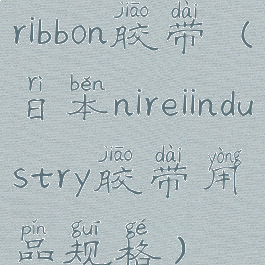 jiāo dài
ribbon胶带(
rì běn
日本nireiindu
jiāo dài yòng
stry胶带用
pǐn guī gé
品规格)